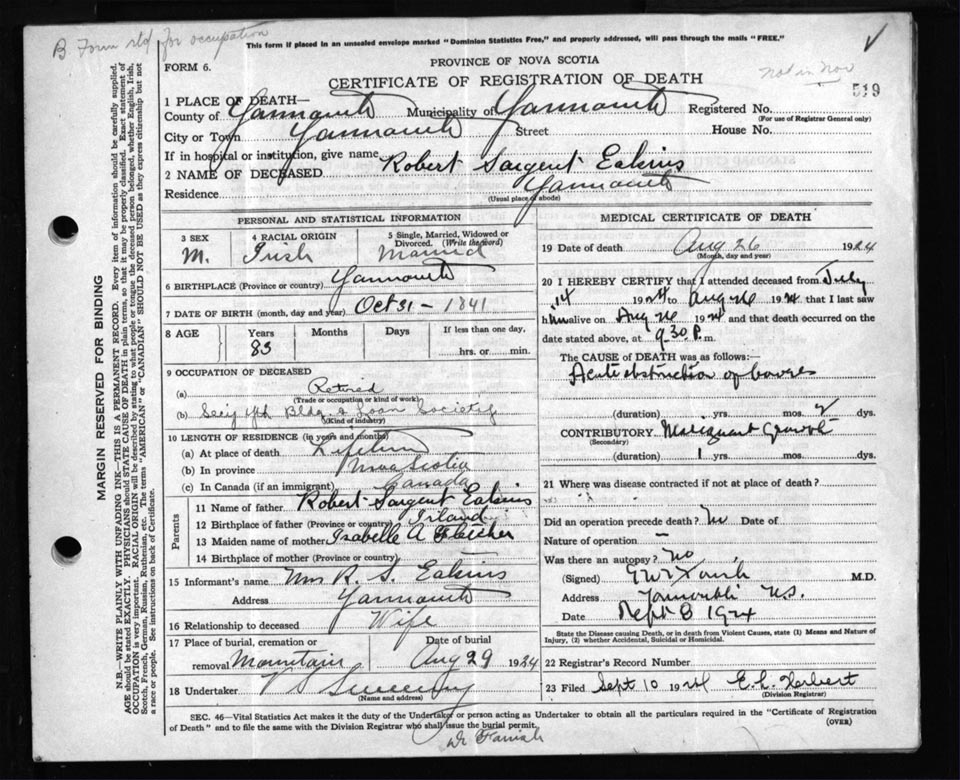 B Form std for occupation
This form if placed in an unsealed envelope marked "Dominion Statistics Free," and properly addressed, will pass through the mails "FREE."
PROVINCE OF NOVA SCOTIA
FORM 6.
CERTIFICATE OF REGISTRATION OF DEATH
Not in Nov
519
1 PLACE OF DEATH—
County of Yarmouth Municipality of Yarmouth Registered No.
(For use of Registrar General only)
City or Town Yarmouth Street House No.
If in hospital or institution, give name
2 NAME OF DECEASED Robert Sargent Eakins
Residence Yarmouth
(Usual place of abode)
PERSONAL AND STATISTICAL INFORMATION
3 SEX 4 RACIAL ORIGIN 5 Single, Married, Widowed or Divorced. (Write the word)
M. Irish Married
6 BIRTHPLACE (Province or country) Yarmouth
7 DATE OF BIRTH (month, day and year) Oct 31 - 1841
8 AGE Years Months Days If less than one day,
83 hrs. or min.
9 OCCUPATION OF DECEASED
(a) Retired
(Trade or occupation or kind of work)
(b) Secy Yth Bldg. & Loan Society
(Kind of industry)
10 LENGTH OF RESIDENCE (in years and months)
(a) At place of death Lifetime
(b) In province Nova Scotia
(c) In Canada (if an immigrant) Canada
Parents
11 Name of father Robert Sargent Eakins
12 Birthplace of father (Province or country) Irland
13 Maiden name of mother Isabelle A Fletcher
14 Birthplace of mother (Province or country)
15 Informant's name Mrs R. S. Eakins
Address Yarmouth
16 Relationship to deceased Wife
17 Place of burial, cremation or removal Mountain Date of burial Aug 29 1924
18 Undertaker V S Sweeny
(Name and address)
MEDICAL CERTIFICATE OF DEATH
19 Date of death Aug 26 1924
(Month, day and year)
20 I HEREBY CERTIFY that I attended deceased from July
14 1924 to Aug 26 1924 that I last saw
him alive on Aug 26 1924 and that death occurred on the
date stated above, at 9.30 P. m.
The CAUSE of DEATH was as follows:
Acute obstruction of bowels
(duration) yrs. mos. 2 dys.
CONTRIBUTORY Malignant Growth
(Secondary)
(duration) 1 yrs. mos. dys.
21 Where was disease contracted if not at place of death?
Did an operation precede death? No Date of
Nature of operation —
Was there an autopsy? No
(Signed) M.D.
Address Yarmouth N.S.
Date Sept 8 1924
State the Disease causing Death, or in death from Violent Causes, state (1) Means and Nature of Injury, (2) whether Accidental, Suicidal or Homicidal.
22 Registrar's Record Number
23 Filed Sept 10 1924 E. L. Herbert
(Division Registrar)
SEC. 46—Vital Statistics Act makes it the duty of the Undertaker or person acting as Undertaker to obtain all the particulars required in the "Certificate of Registration
of Death" and to file the same with the Division Registrar who shall issue the burial permit. (OVER)
MARGIN RESERVED FOR BINDING
N.B.—WRITE PLAINLY WITH UNFADING INK—THIS IS A PERMANENT RECORD. Every item of information should be carefully supplied.
AGE should be stated EXACTLY. PHYSICIANS should STATE CAUSE OF DEATH in plain terms, so that it may be properly classified. Exact statement of
OCCUPATION is very important. RACIAL ORIGIN will be described by stating to what people or tongue the deceased person belonged, whether English, Irish,
Scotch, French, German, Russian, Ruthenian, etc. The terms "AMERICAN" or "CANADIAN" SHOULD NOT BE USED as they express citizenship but not
a race or people. See instructions on back of Certificate.